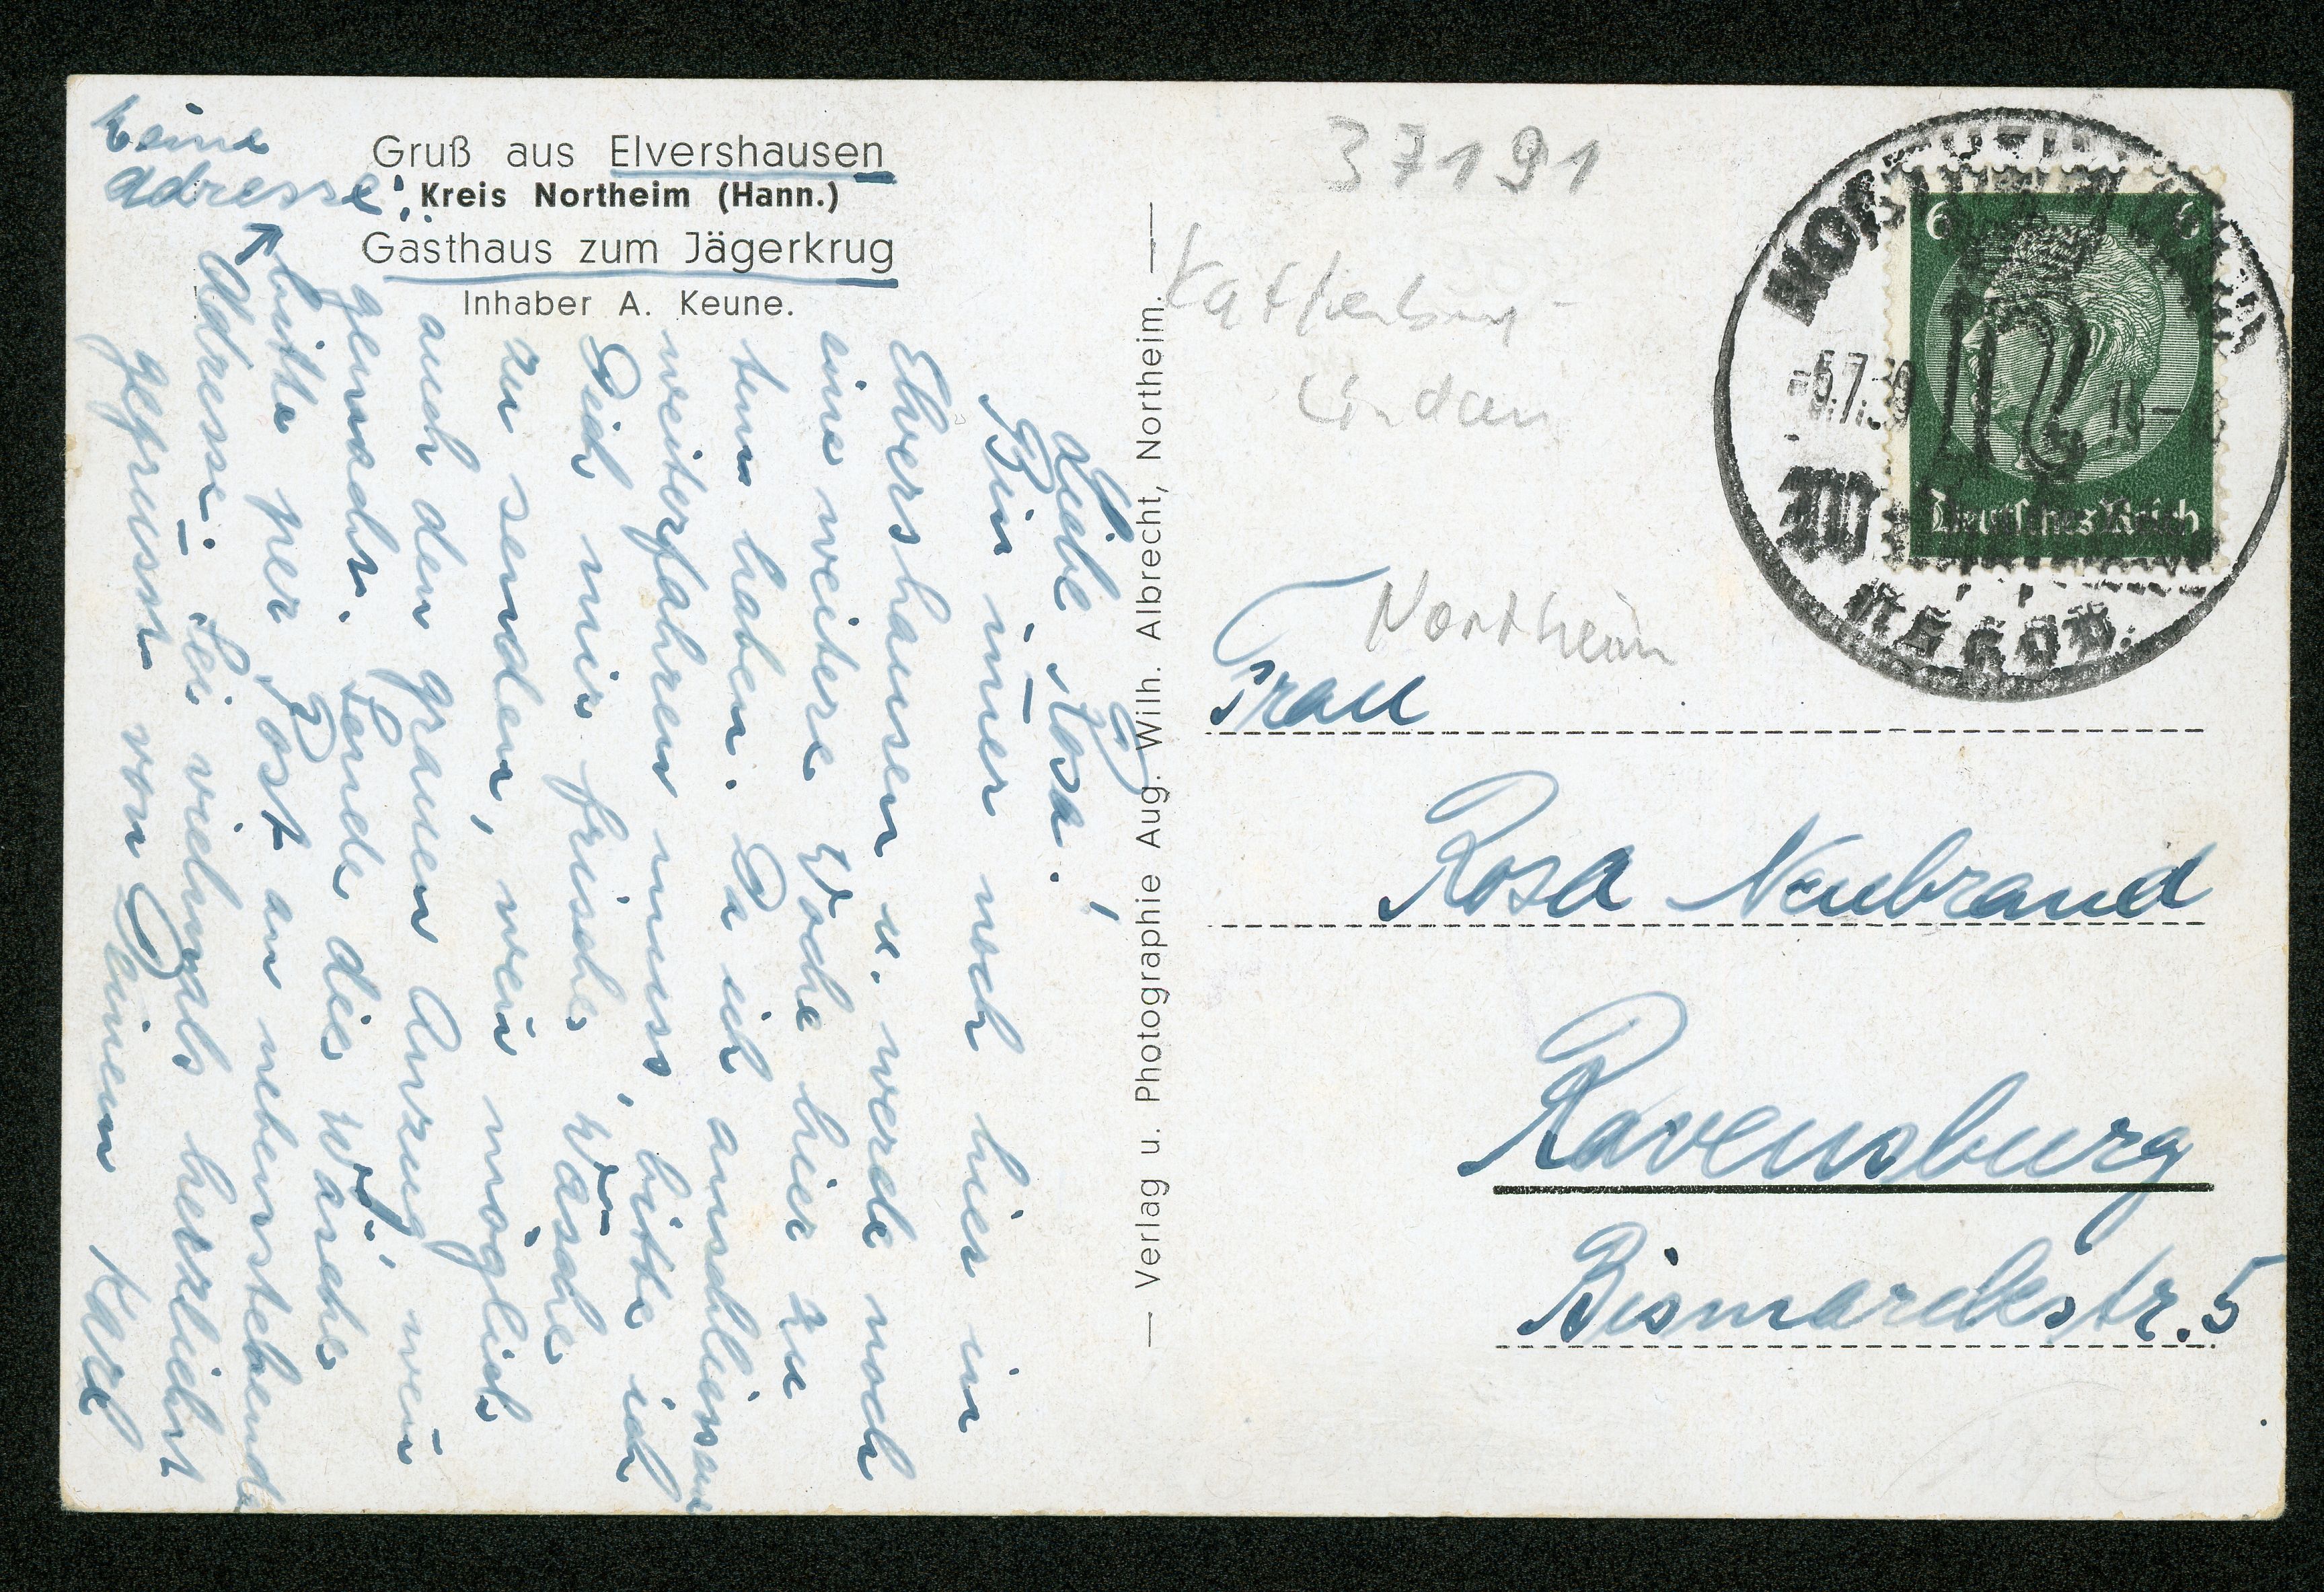 Gruß aus Elvershausen
Kreis Northeim (Hann.)
Gasthaus zum Jägerkrug
Inhaber A. Keune.
keine
Adresse!
Liebe Rosa!
Bin im̄er noch hier in
Elvershausen u. werde noch
eine weitere Woche hier zu
tun haben. Da ich anschliessend
weiterfahren muss, bitte ich
Dich mir frische Wäsche
zu senden, wen̄ möglich
auch den grauen Anzug wen̄
gewaschen. Sende die Wäsche
bitte per Post an nebenstehende
Adresse. Sei vielmals herzlichst
gegrüsst von Deinem Karl
— Verlag u. Photographie Aug. Wilh. Albrecht, Northeim. —
37191
Katlenburg-
Lindau
Northeim
6 6
Deutsches Reich
Frau
Rosa Neubrand
Ravensburg
Bismarckstr. 5